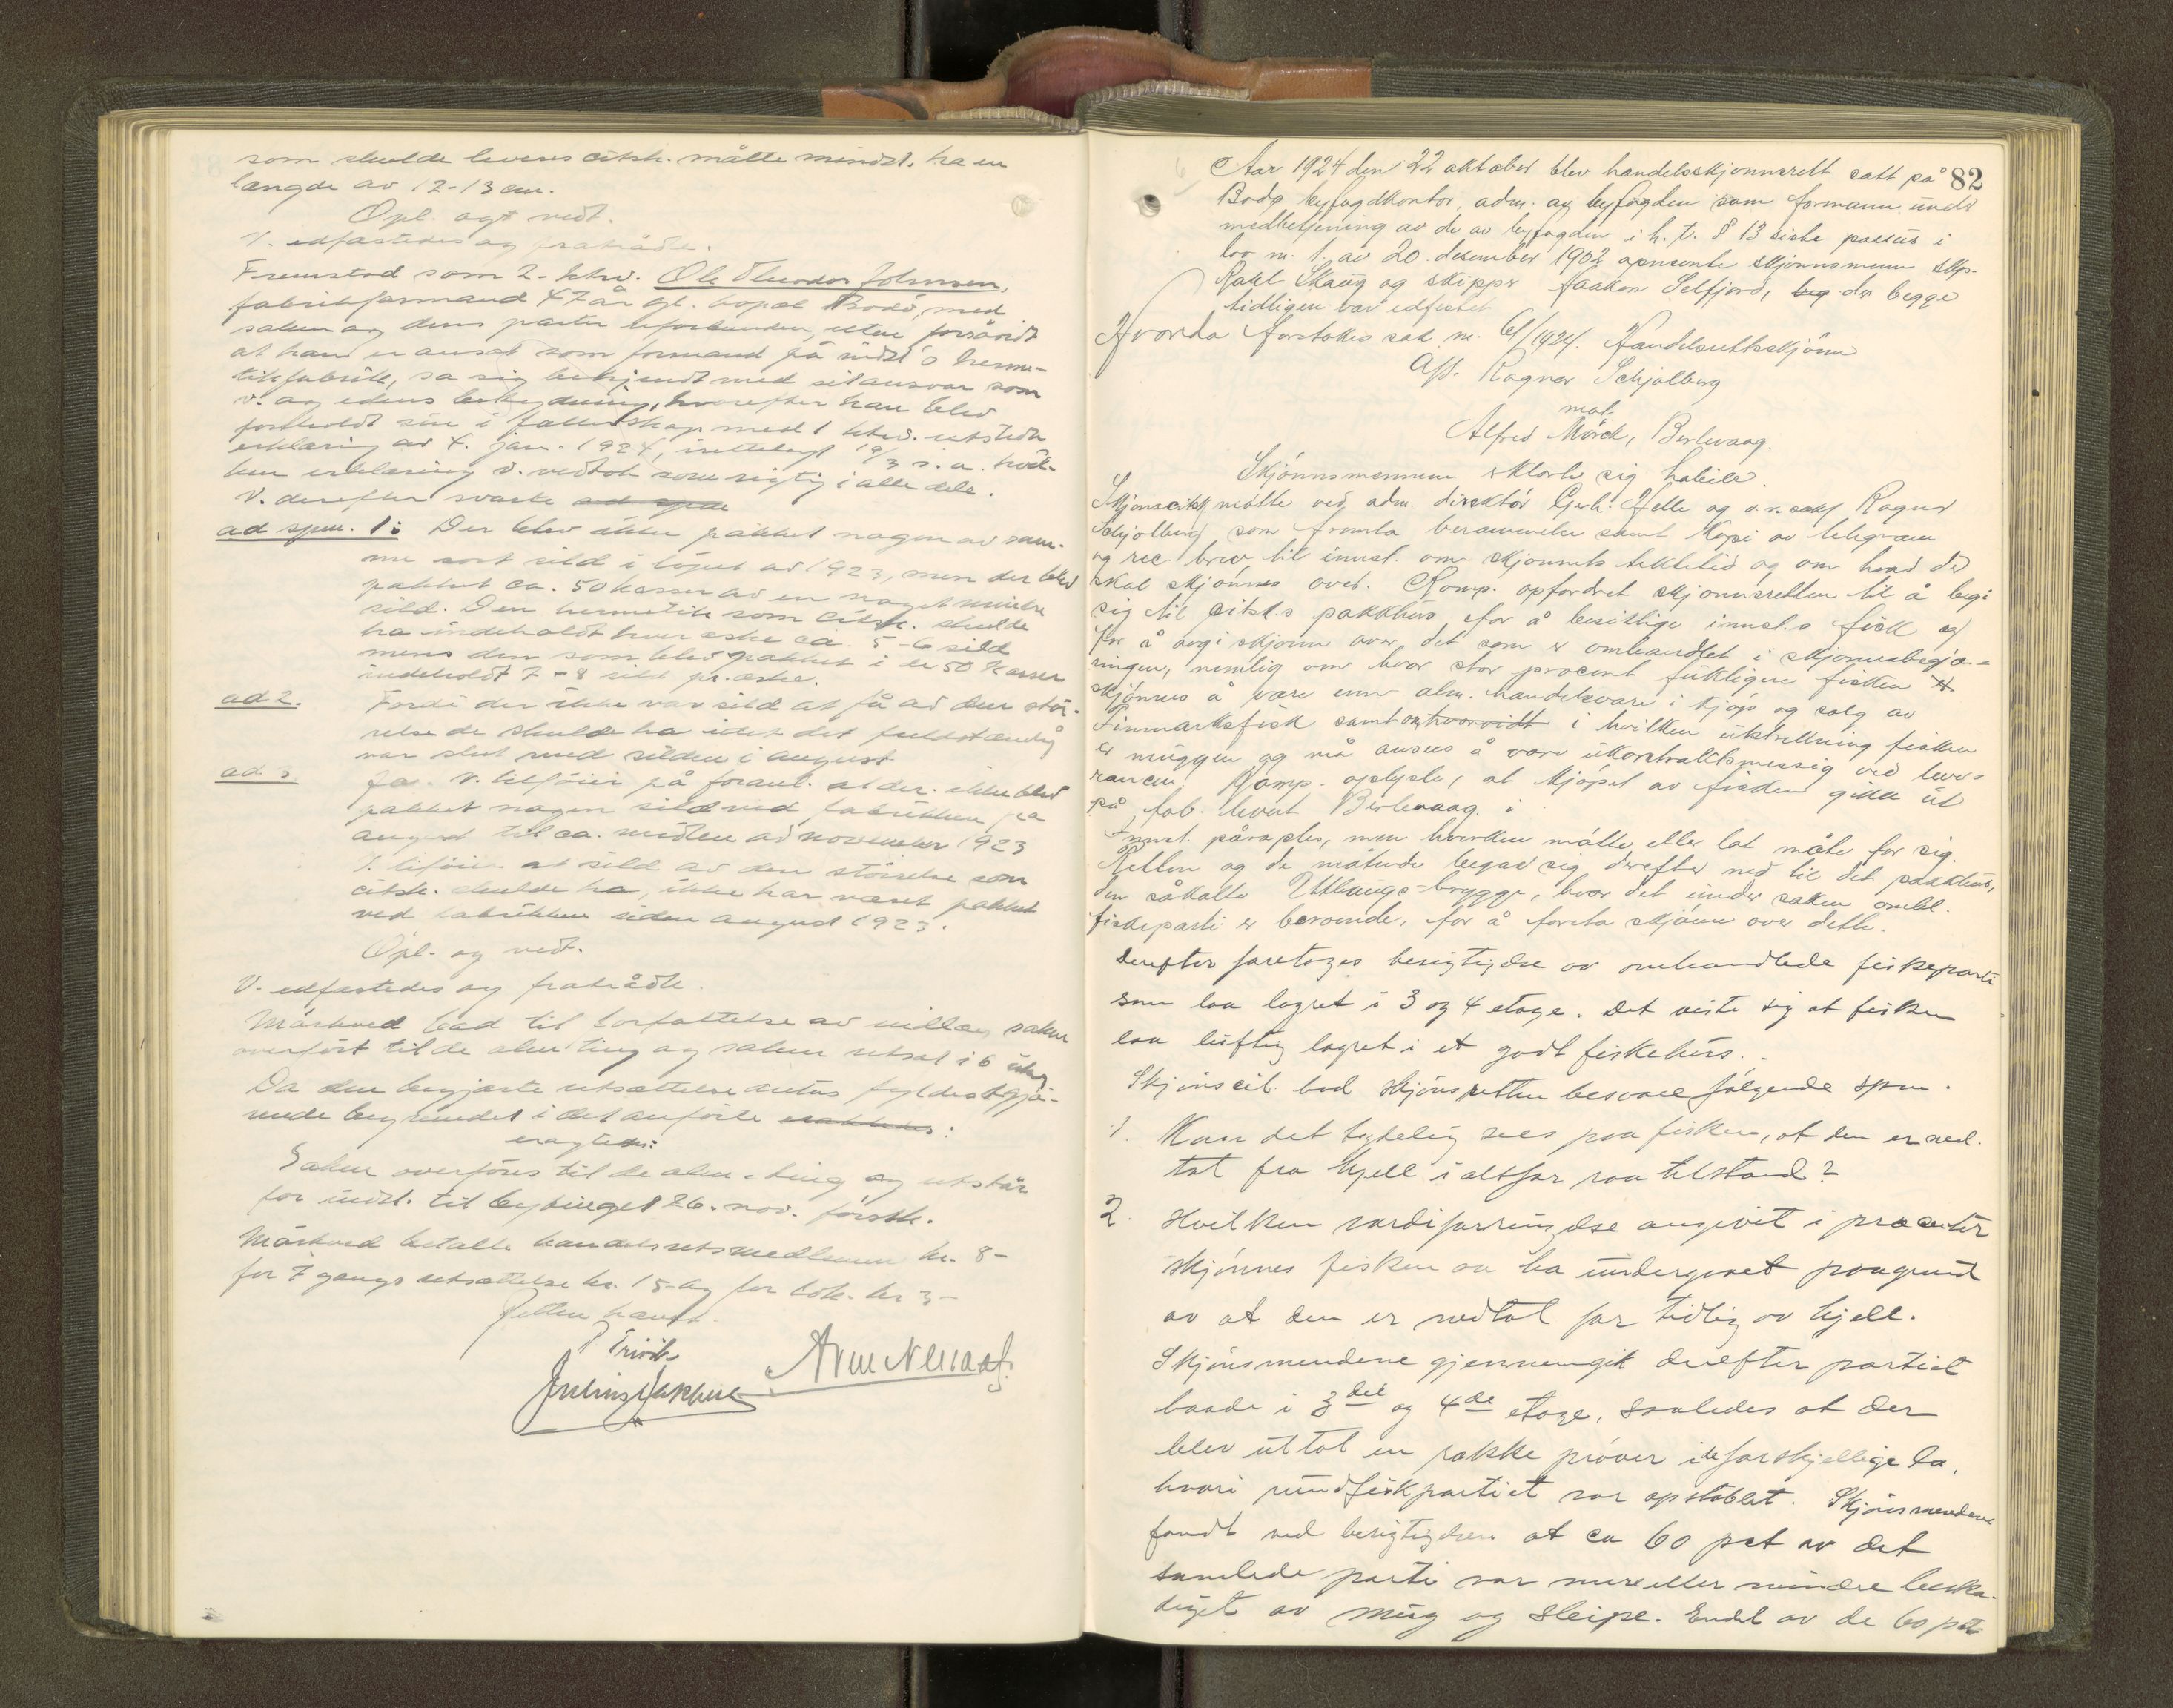 som skulde leveres citsk. måtte mindst. ha en
længde av 12-13 cm.
Opl. og vedt.
V. edfæstedes og fratrådte.
Fremstod som 2. ktrv. Ole Theodor Johnsen,
fabrikformand 47 år gl. bopæl Bodö, med
saken og dens parter uforbunden, uten forsåvidt
at han er ansat som formand på indst's herme-
tikfabrik, sa sig bekjendt med sit ansvar som
v. og edens betydning, hvorefter han blev
foreholdt sin i fællesskap med 1 ktrv. utstedte
erklæring av 4. jan. 1924, irettelagt 19/3 s.a. hvil-
ken erklæring v. vedtok som rigtig i alle dele.
V. derefter svarte
ad spm. 1: Der blev ikke pakket nogen av sam-
me sort sild i löpet av 1923, men der blev
pakket ca. 50 kasser av en noget mindre
sild. Den hermetik som citsk. skulde
ha indeholdt hver æske ca. 5-6 sild
mens den som blev pakket i de 50 kasser
indeholdt 7-8 sild pr. æske.
ad 2. Fordi der ikke var sild at få av den stör-
relse de skulde ha idet det fuldstændig
var slut med silden i august
ad 3. Ja. V. tilföier på foranl. at der ikke blev
pakket nogen sild ved fabrikken fra
august til ca. midten av november 1923
V. tilföier at sild av den störrelse som
citsk. skulde ha, ikke har været pakket
ved fabrikken siden august 1923.
Opl. og vedt.
V. edfæstedes og fratrådte.
Mörkved bad til forfattelse av indlæg saken
overfört til de alm. ting og saken utsat i 6 uker
Da den begjærte utsættelse antas fyldestgjö-
rende begrundet i det anförte
eragtedes:
Saken overföres til de alm. ting og utstår
for indst. til bytinget 26. nov. förstk.
Mörkved betalte handelsretsmedlemmene kr. 8-
for 7 gangs utsættelse kr. 15- og for tolk. kr 3-
Retten hævet.
82
Aar 1924 den 22 oktober blev handelsskjønnsrett satt på
Bodø byfogdkontor, adm. av byfogden som formann under
medbetjening av de av byfogden i h. t. § 13 siste passus i
lov nr. 1. av 20. desember 1902 opnevnte skjønnsmenn skps.
Rakel Skaug og skipper Haakon Selfjord, der begge
tidligere var edfestet
Hvorda foretokes sak nr. 61/1924. Handelsrettsskjønn
A/S. Ragnar Schjølberg
mot
Alfred Mörck, Berlevaag.
Skjönnsmennene erklærte sig habile.
Skjönscitsk. møtte ved adm. direktør Gerh. Helle og o.r.sakf. Ragnar
Schjölberg som fremla berammelse samt kopi av telegram
og rec. brev til innst. om skjønnets tektetid og om hvad der
skal skjönnes over. Komp. opfordret skjönnsretten til å begi
sig til citsk.s pakkhus for å besiktige innst.s fisk og
for å avgi skjønn over det som er omhandlet i skjønnsbegjæ-
ringen, nemlig om hvor stor procent fuktigere fisken
skjønnes å være enn alm. handelsvare i kjøp og salg av
Finmarksfisk samt i hvilken utstrekning fisken
er muggen og må ansees å være ukontraktsmessig ved leve-
rancen. Komp. oplyste, at kjøpet av fisken gikk ut
på fob. levert Berlevaag.
Innst. påroptes, men hverken møtte eller lot møte for sig.
Retten og de møtende begav sig derefter ned til det pakkhus,
den såkalte Utlaugs-brygge, hvor det under saken omhl.
fiskeparti er beroende, for å foreta skjønn over dette.
Derefter foretoges besigtigelse av omhandlede fiskeparti
som laa lagret i 3 og 4 etage. Det viste sig at fisken
laa luftig lagret i et godt fiskehus.
Skjønscit. bad skjønsretten besvare følgende spm.
1. Kan det tydelig sees paa fisken, at den er ned-
tat fra hjell i altfor raa tilstand?
2. Hvilken værdiforringelse angivit i procenter
skjønnes fisken aa ha undergaaet paagrund
av at den er nedtat for tidlig av hjell.
Skjønsmendene gjennemgik derefter partiet
baade i 3die og 4de etage, saaledes at der
blev uttat en rakke prøver i de forskjellige la,
hvori rundfiskpartiet var opstablet. Skjønsmendene
fandt ved besigtigelsen at ca 60 pct av det
samlede parti var mere eller mindre beska-
diget av mug og sleipe. Endel av de 60 pct